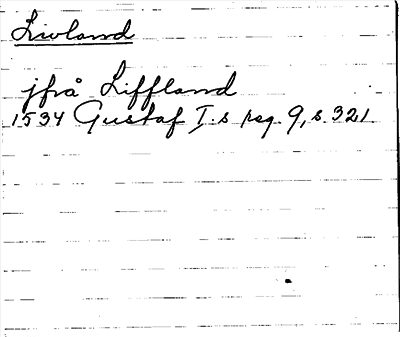 Livland
jfrå Liffland
1534 Gustaf I:s reg. 9, s. 321